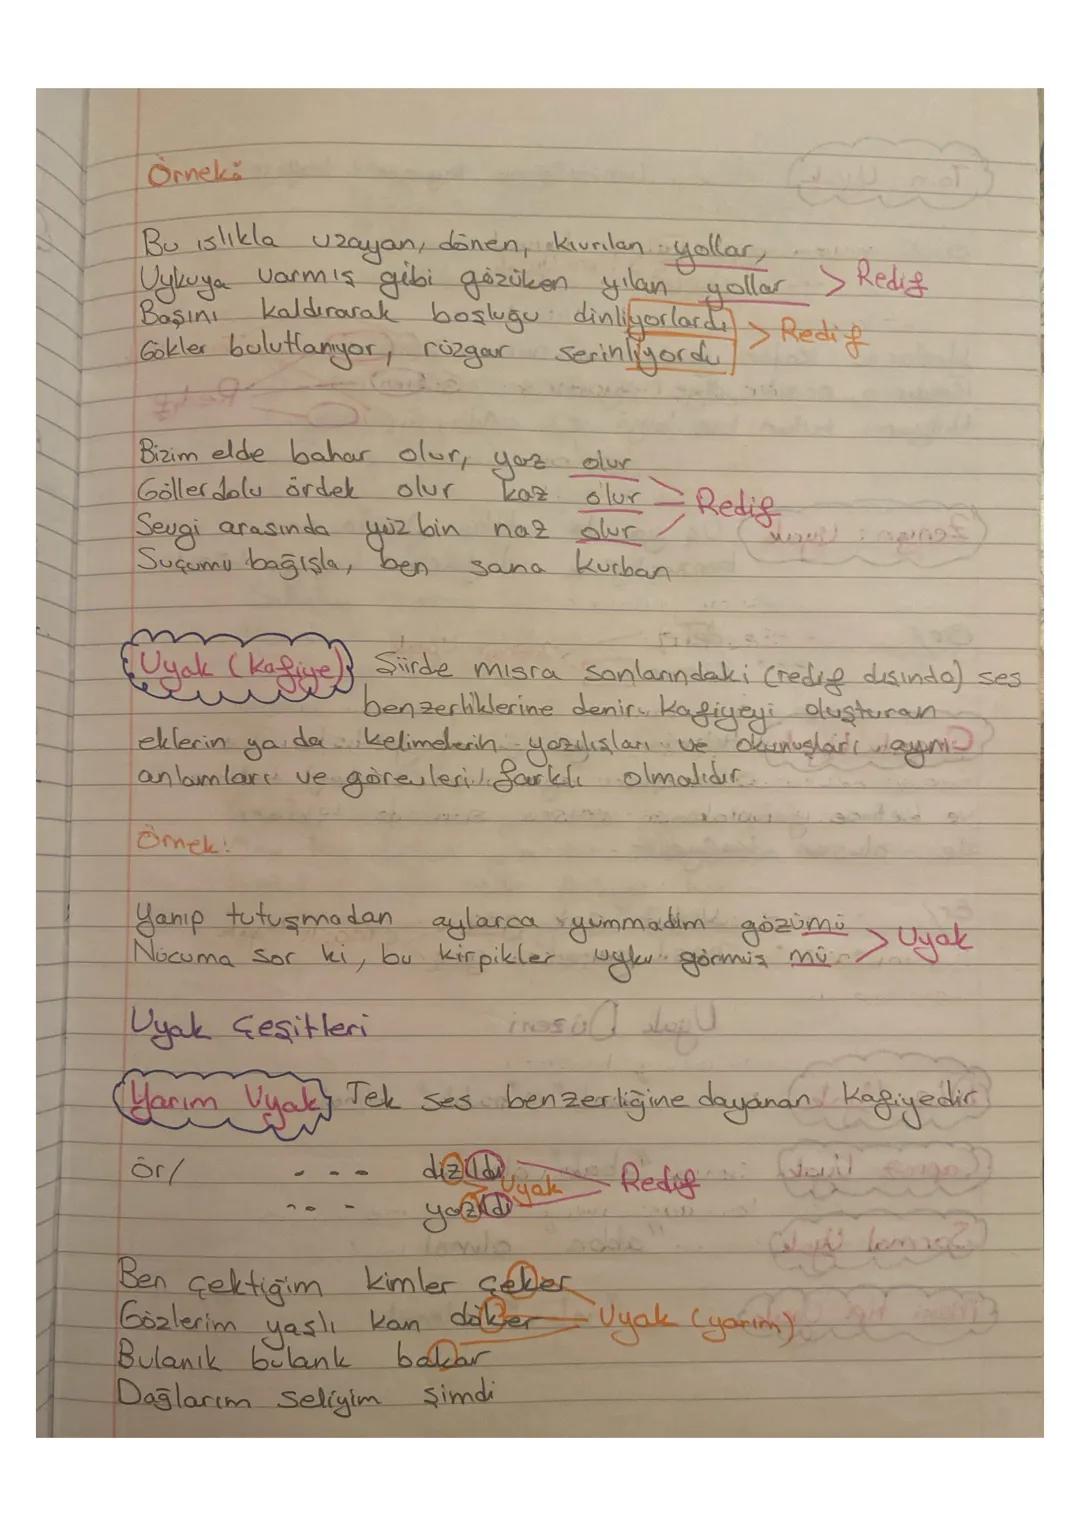 Örnek:
Bu ıslıkla uzayan, dönen, kıvrılan yollar,
Uykuya varmış gibi gözüken yılan yollar > Redif
Başını kaldırarak boşluğu dinliyorlardı
Gökler bulutlanıyor, rüzgar serinliyordu > Redif
Bizim elde bahar olur, yaz olur
Göller dolu ördek olur kaz olur Redif
Sevgi arasında yüz bin naz olur
Suçumu bağışla, ben sana kurban
Uyak (Kafiye) Şiirde mısra sonlarındaki (redif dışında) ses
benzerliklerine denir. Kafiyeyi oluşturan
eklerin ya da kelimelerin yazılışları ve okunuşları aynı
anlamları ve görevleri farklı olmalıdır.
Örnek:
Yanıp tutuşmadan aylarca yummadım gözümü
Nücuma sor ki, bu kirpikler uyku görmüş mü > Uyak
Uyak Çeşitleri
Yarım Uyak Tek ses benzerliğine dayanan kafiyedir
Ör/ - - - dizildi Uyak Redif
- - - yazıldı
Ben çektiğim kimler çeker
Gözlerim yaşlı kan döker Uyak (yarım)
Bulanık bulanık bakar
Dağların seliyim şimdi